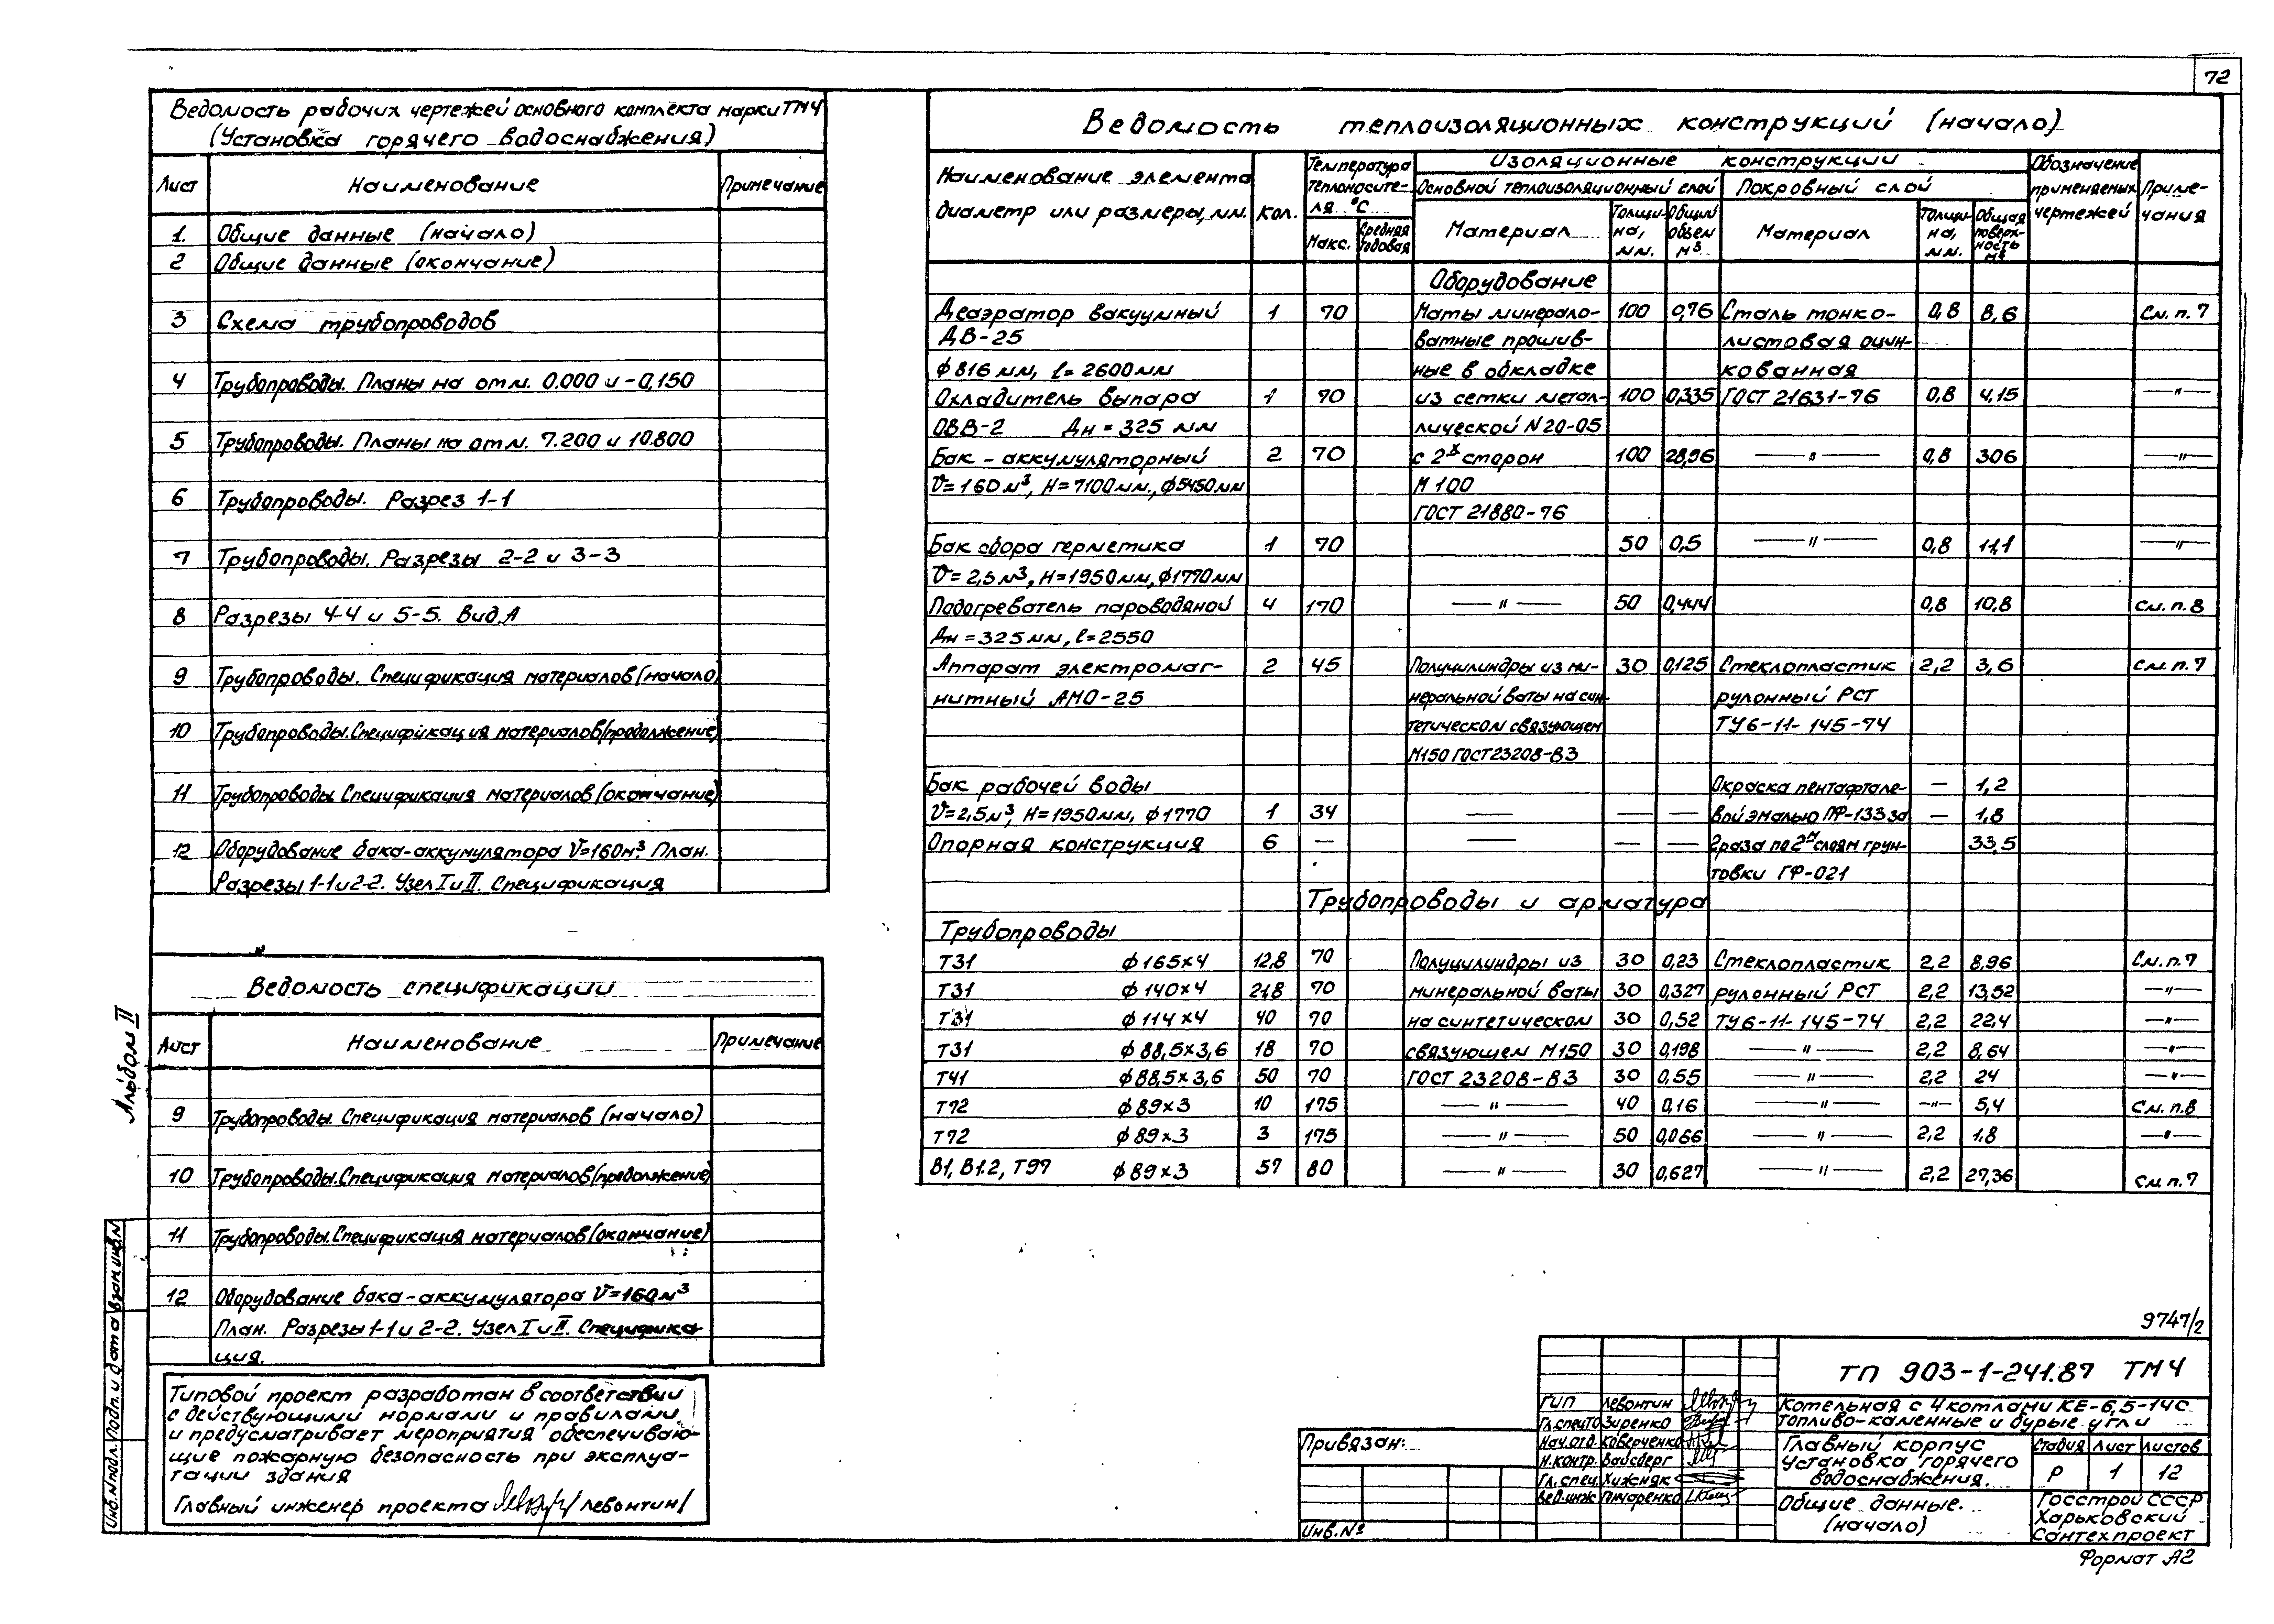 72
Ведомость рабочих чертежей основного комплекта марки ТМ4
(Установка горячего водоснабжения)
Лист Наименование Примечание
1. Общие данные (начало)
2 Общие данные (окончание)
3 Схема трубопроводов
4 Трубопроводы. Планы на отм. 0.000 и -0,150
5 Трубопроводы. Планы на отм. 7.200 и 10.800
6 Трубопроводы. Разрез 1-1
7 Трубопроводы. Разрезы 2-2 и 3-3
8 Разрезы 4-4 и 5-5. Вид А
9 Трубопроводы. Спецификация материалов (начало)
10 Трубопроводы. Спецификация материалов (продолжение)
11 Трубопроводы. Спецификация материалов (окончание)
12 Оборудование бака-аккумулятора V=160м³. План.
Разрезы 1-1 и 2-2. Узел I и II. Спецификация
Ведомость спецификации
Лист Наименование Примечание
9 Трубопроводы. Спецификация материалов (начало)
10 Трубопроводы. Спецификация материалов (продолжение)
11 Трубопроводы. Спецификация материалов (окончание)
12 Оборудование бака-аккумулятора V=160м³
План. Разрезы 1-1 и 2-2. Узел I и II. Специфика-
ция.
Типовой проект разработан в соответствии
с действующими нормами и правилами
и предусматривает мероприятия обеспечиваю-
щие пожарную безопасность при эксплуа-
тации здания
Главный инженер проекта /Левонтин/
Альбом II
Инв.N подл. Подп. и дата Взам.инв.N
Ведомость теплоизоляционных конструкций (начало)
Наименование элемента
диаметр или размеры, мм.
Кол.
Температура
теплоносите-
ля °С
Макс. Средняя годовая
Изоляционные конструкции
Основной теплоизоляционный слой Покровный слой
Материал Толщи-на, мм. Общий объем м³ Материал Толщи-на, мм. Общая поверх-ность м²
Обозначение
применяемых
чертежей
Приме-
чания
Оборудование
Деаэратор вакуумный 1 70 Маты минерало- 100 0,76 Сталь тонко- 0,8 8,6 См. п. 7
ДВ-25 ватные прошив- листовая оцин-
ф816мм, l=2600мм ные в обкладке кованная
Охладитель выпара 1 70 из сетки метал- 100 0,335 ГОСТ 21631-76 0,8 4,15 —"—
ОВВ-2 Дн=325 мм лической N20-05
Бак-аккумуляторный 2 70 с 2х сторон 100 28,96 —"— 0,8 306 —"—
V=160м³, Н=7100мм., ф5450мм М 100
ГОСТ 21880-76
Бак сбора герметика 1 70 50 0,5 —"— 0,8 11,1 —"—
V=2,5м³, Н=1950мм, ф1770мм
Подогреватель пароводяной 4 170 —"— 50 0,444 0,8 10,8 См. п. 8
Дн=325мм, l=2550
Аппарат электромаг- 2 45 Полуцилиндры из ми- 30 0,125 Стеклопластик 2,2 3,6 См. п. 7
нитный АМО-25 неральной ваты на син- рулонный РСТ
тетическом связующем ТУ6-11-145-74
М150 ГОСТ23208-83
Бак рабочей воды Окраска пентафтале- — 1,2
V=2,5м³, Н=1950мм, ф1770 1 34 — — — вой эмалью ПФ-133 за — 1,8
Опорная конструкция 6 — — — — 2 раза по 2м слоям грун- 33,5
товки ГФ-021
Трубопроводы и арматура
Трубопроводы
Т31 ф165×4 12,8 70 Полуцилиндры из 30 0,23 Стеклопластик 2,2 8,96 См. п. 7
Т31 ф140×4 21,8 70 минеральной ваты 30 0,327 рулонный РСТ 2,2 13,52 —"—
Т31 ф114×4 40 70 на синтетическом 30 0,52 ТУ6-11-145-74 2,2 22,4 —"—
Т31 ф88,5×3,6 18 70 связующем М150 30 0,198 —"— 2,2 8,64 —"—
Т41 ф88,5×3,6 50 70 ГОСТ 23208-83 30 0,55 —"— 2,2 24 —"—
Т72 ф89×3 10 175 —"— 40 0,16 —"— —"— 5,4 См. п. 8
Т72 ф89×3 3 175 —"— 50 0,066 —"— 2,2 1,8 —"—
В1, В1.2, Т97 ф89×3 57 80 —"— 30 0,627 —"— 2,2 27,36 См. п. 7
9747/2
ТП 903-1-241.87 ТМ4
Котельная с 4 котлами КЕ-6,5-14С
Топливо-каменные и бурые угли
Главный корпус
Установка горячего
водоснабжения.
Стадия Лист Листов
Р 1 12
Общие данные.
(начало)
Госстрой СССР
Харьковский
Сантехпроект
Формат А2
ГИП Левонтин
Гл.спецТО Зиренко
Нач.отд. Коверченко
Н.контр. Вайсберг
Гл.спец. Хижняк
Вед.инж Гончаренко
Привязан:
Инв.№